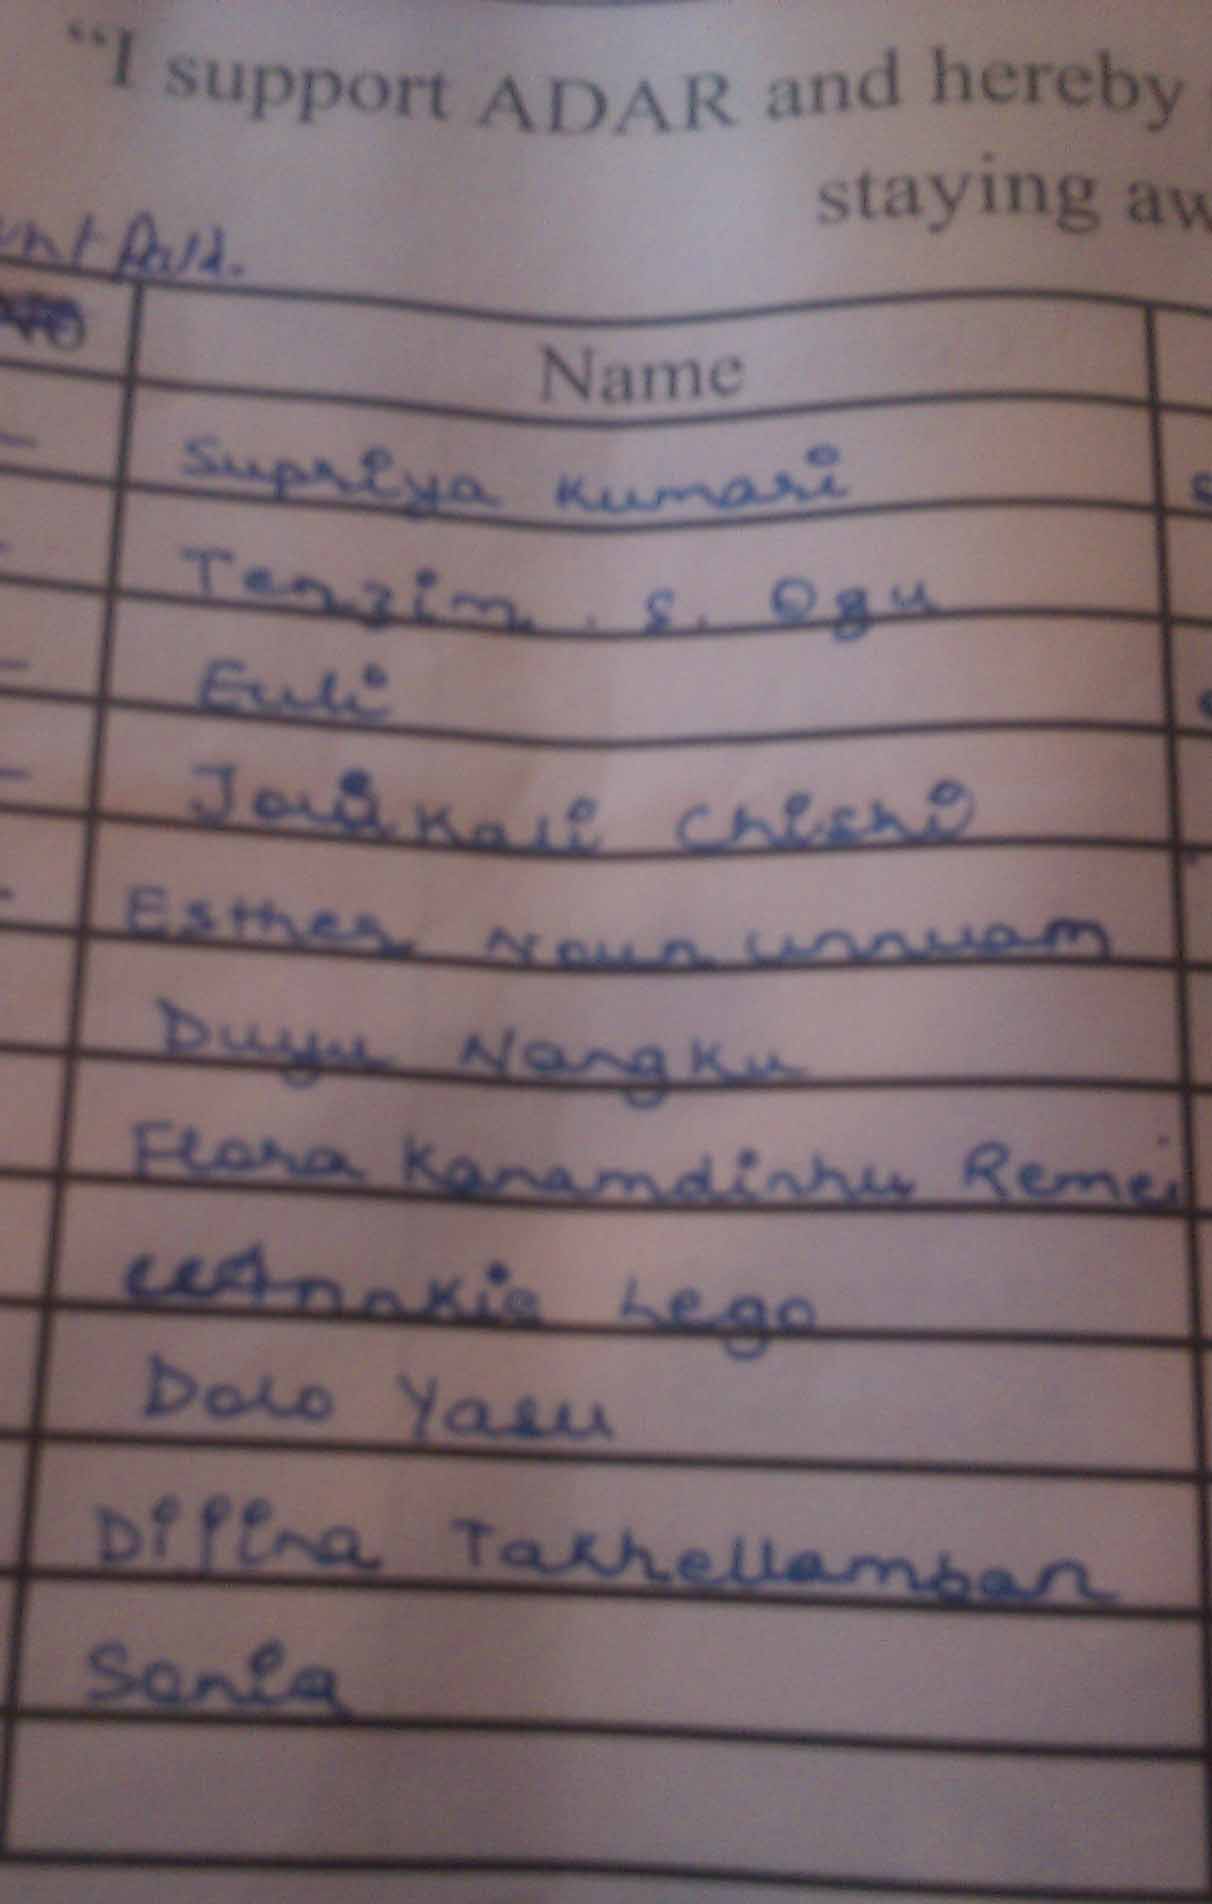 "I support ADAR and hereby
staying
Paid.
Name
Supriya Kumari
Tenzim . S. Ogu
Euli
Kali Chishi
Esther
Duyu Nangku
Flora Karamdinhu Remei
Lego
Dolo Yasu
Takhellamban
Sonia